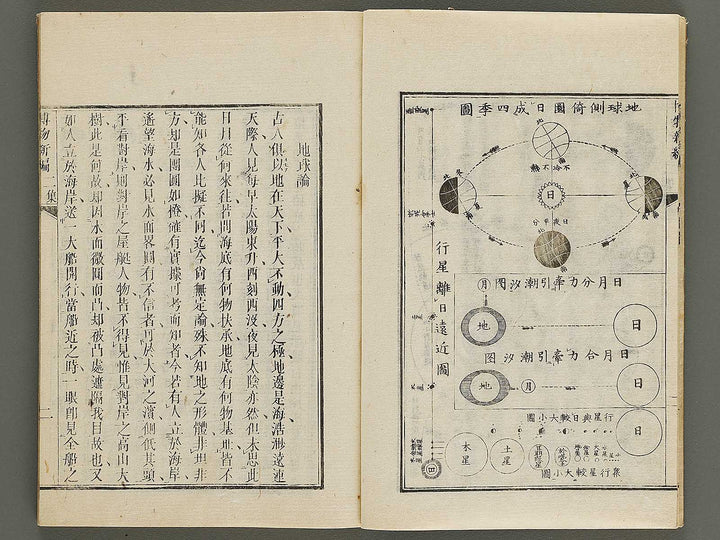 地球側倚圜日成四季圖
日
行星離日遠近圖
日月分力牽引潮汐圖
月
地
日
日月合力牽引潮汐圖
地
月
日
行星與日較大小圖
日
木星
土星
衆行星較大小圖
日
地球論
古人俱以地在天下平大不動四方之極地邊是海浩淋遠連
天際人見每早太陽東升西刻西沒夜見太陰亦然但未思此
日月從何來往若問海底有何物扶承地底有何物基址皆不
能知各人比擬不同迄今尙無定論殊不知地之形體非坦非
方却是團圓如橙確有實據可考而知者今若有人立於海岸
遙望海水必見水面畧圓有不信者可於大河之濱側低其頭
平看對岸則對岸之屋艇人物皆不得見惟見對岸之高山大
樹此是何故却因水面微圓而凸却被凸處遮隔我目故也又
如人立於海岸送一大船開行當船近之時一眼卽見全船之
博物新編二集
二